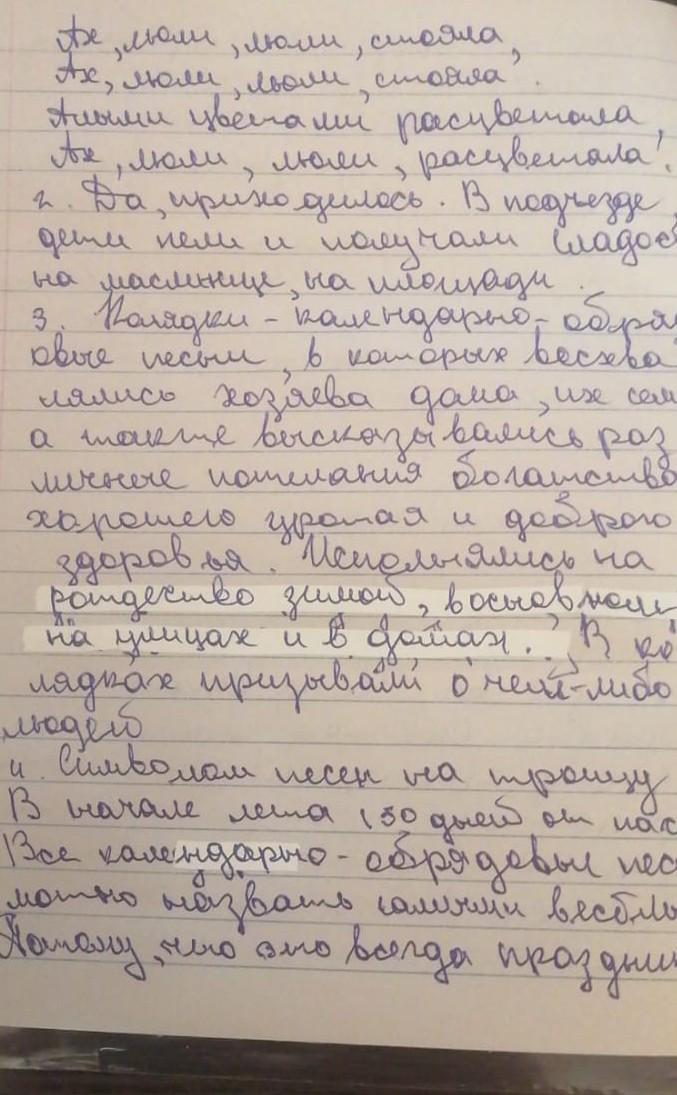 Ах, люли, люли, стояла,
Ах, люли, люли, стояла.
Алыми цветами расцветала,
Ах, люли, люли, расцветала.
2. Да, приходилось. В подъезде
дети пели и получали сладос
на масленице, на площади.
3. Колядки - календарно-обря
овые песни, в которых восхва
лялись хозяева дома, их сем
а также высказывались раз
личные пожелания богатства
хорошего урожая и доброго
здоровья. Исполнялись на
рождество зимой, в основном
на улицах и в домах. В ко
лядках призывали о чем-либо
людей
4. Символом песен на троицу
В начале лета (50 дней от пас
Все календарно-обрядовые пес
можно назвать самыми весёлы
Потому, что это всегда праздник